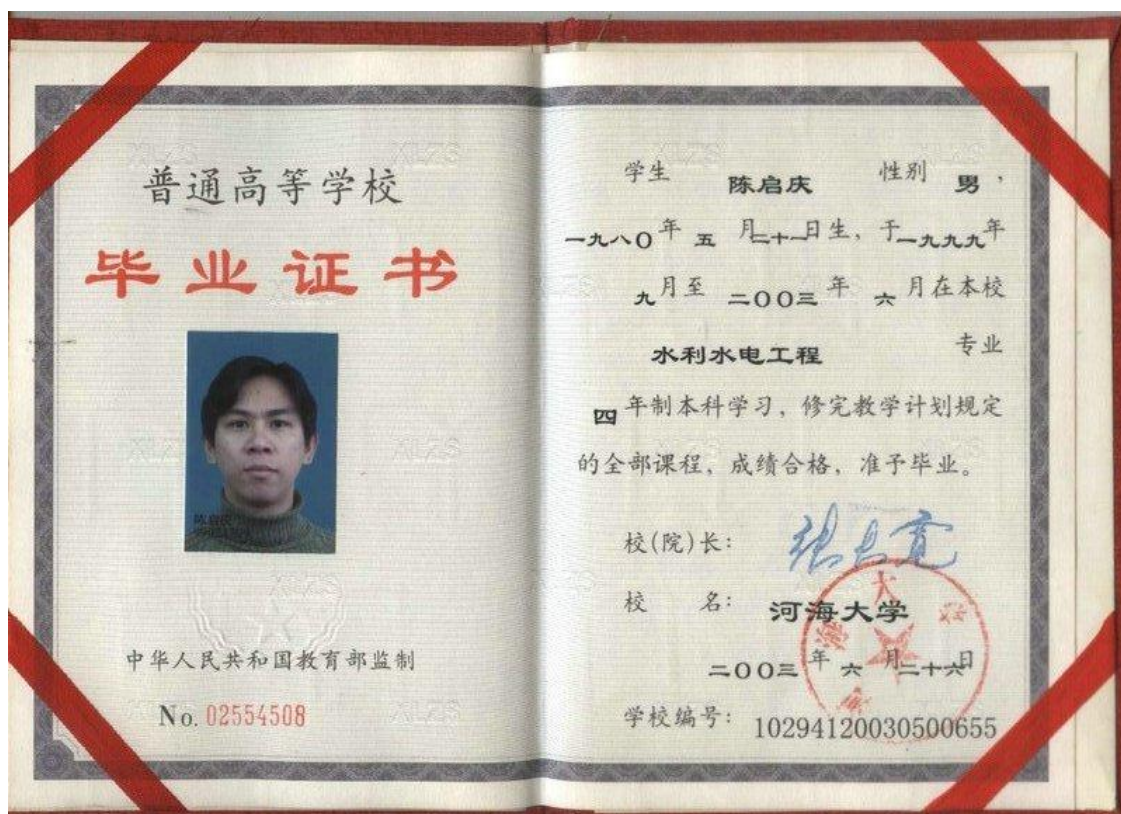 普通高等学校
毕业证书
陈启庆
中华人民共和国教育部监制
No. 02554508
学生 陈启庆 性别 男，
一九八〇年 五 月二十一日生，于一九九九年
九月至 二〇〇三 年 六 月在本校
水利水电工程 专业
四年制本科学习，修完教学计划规定
的全部课程，成绩合格，准予毕业。
校(院)长：
校 名： 河海大学
二〇〇三 年 六 月二十六日
学校编号： 10294120030500655
XLZS